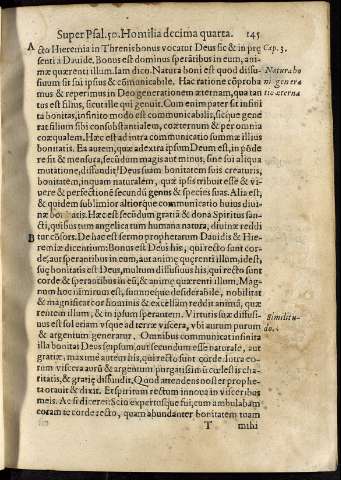 Super Psal. 50. Homilia decima quarta. 145
A
cto Hieremia in Threnis bonus vocatur Deus sic & in prę
senti a Dauide. Bonus est dominus sperātibus in eum, ani-
mæ quærenti illum. Iam dico. Natura boni est quod diffu-
siuum sit sui ipsius & cōmunicabile. Hac ratione cōproba
mus & reperimus in Deo generationem æternam, qua tan
tus est filius, sicut ille qui genuit. Cum enim pater sit infini
ta bonitas, infinito modo est communicabilis, sicque gene
rat filium sibi consubstantialem, coæternum & per omnia
coæqualem. Hæc est ad intra communicatio summæ illius
bonitatis. Ea autem, quæ ad extra ipsum Deum est, in pōde
re fit & mensura, secūdum magis aut minus, sine sui aliqua
mutatione, diffundit Deus suam bonitatem suis creaturis,
bonitatem, inquam naturalem, quæ ipsis tribuit esse & vi-
uere & perfectionē secundū genus & species suas. Alia est,
& quidem sublimior altiorque communicatio huius diui-
næ bonitatis. Hæc est secūdum gratiā & dona Spiritus san-
cti, quibus tum angelica tum humana natura, diuinæ reddi
B
tur cōsors. De hac est sermo prophetarum Dauidis & Hie-
remiæ dicentium: Bonus est Deus his, qui recto sunt cor-
de, aut sperantibus in eum, aut animę quęrenti illum, id est,
suę bonitatis est Deus, multum diffusiuus his, qui recto sunt
corde & sperantibus in eū, & animę quærenti illum. Mag-
num hoc nimirum est, summeque desiderabile, nobilitat
& magnificat cor hominis & excelsam reddit animā, quæ
rentem illum, & in ipsum sperantem. Virtutis suæ diffusi-
uus est sol etiam vsque ad terræ viscera, vbi aurum purum
& argentum generatur. Omnibus communicat infinita
illa bonitas Deus seipsum, aut secundum esse naturale, aut
gratiæ, maxime autem his, qui recto sunt corde. Intra eo-
rum viscera aurū & argentum purgatissimū cœlestis cha-
ritatis, & gratię diffundit. Quod attendens noster prophe-
ta orauit & dixit. Et spiritum rectum innoua in visceribus
meis. Ac si diceret: Scio expertusque sui, cum ambulabam
coram te corde recto, quam abundanter bonitatem tuam
T mihi
Cap. 3.
Natura bo
ni genera
tio æterna
Similitu-
do.